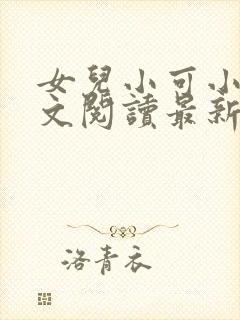 女兒小可小
文閱讀最新
洛青衣